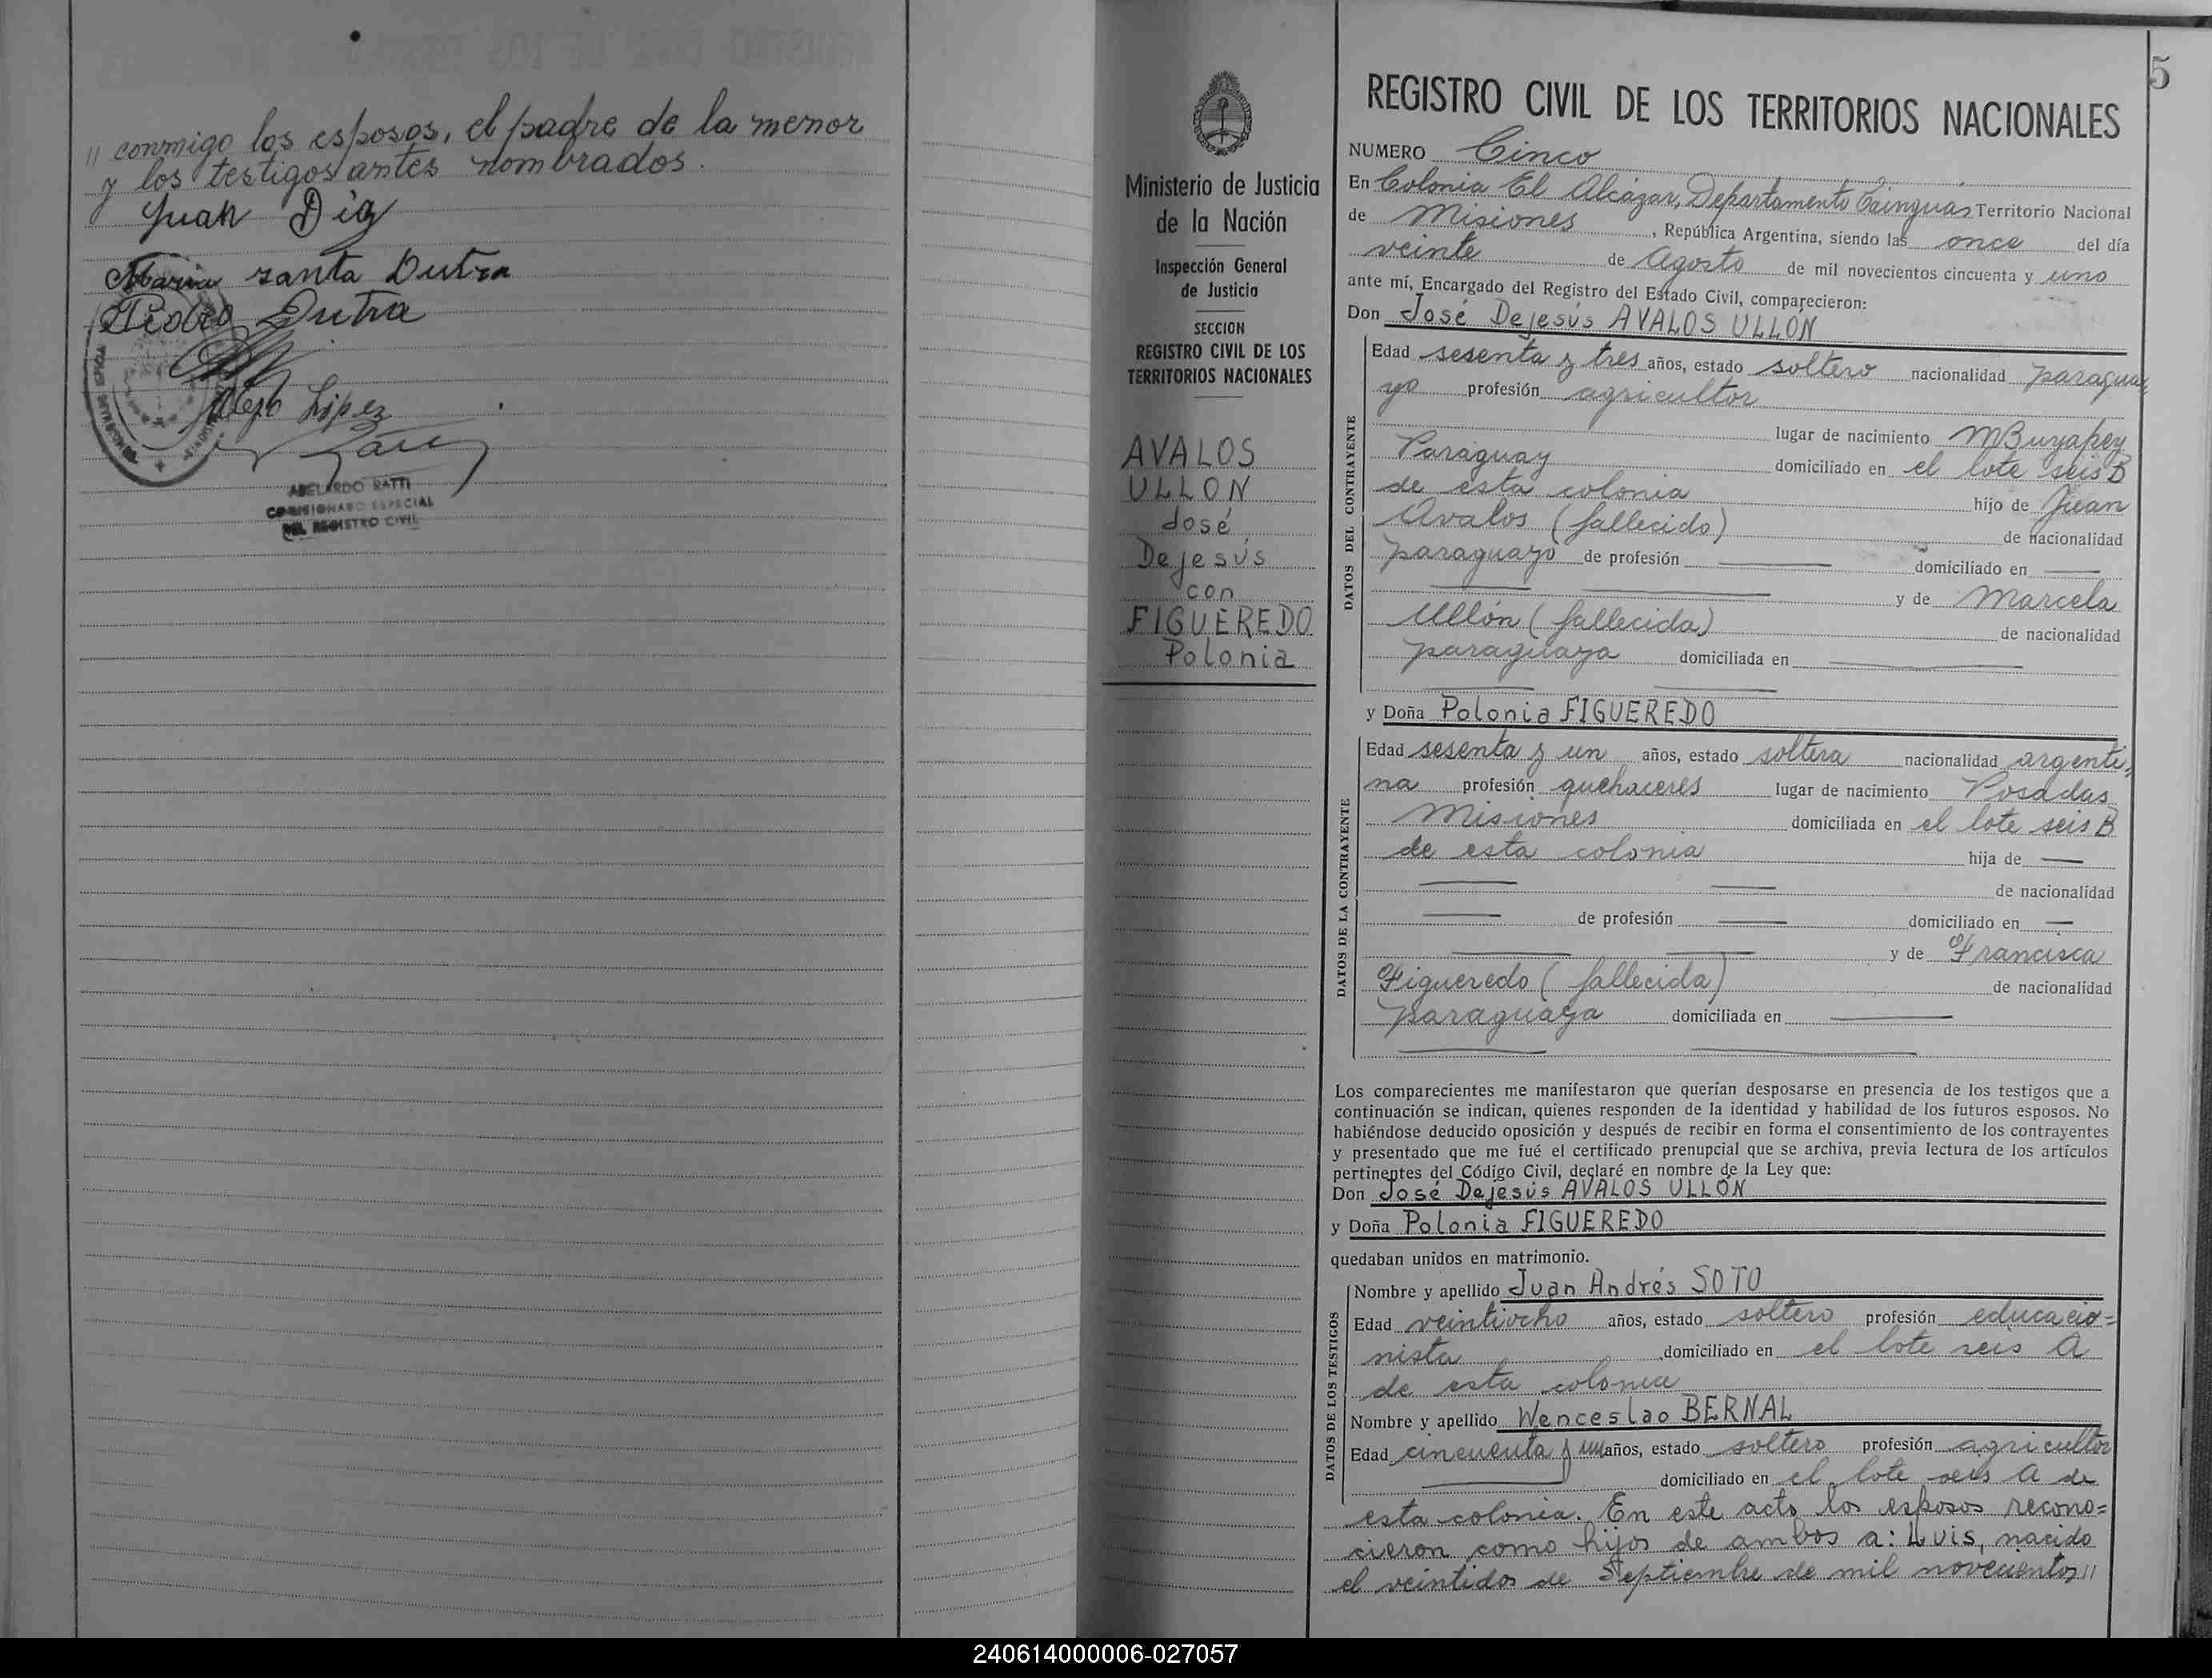 " conmigo los esposos, el padre de la menor
y los testigos antes nombrados.
Juan Díaz
Maria santa Dutra
Pedro Dutra
Alejo López
ABELARDO RATTI
COMISIONADO ESPECIAL
DEL REGISTRO CIVIL
Ministerio de Justicia
de la Nación
Inspección General
de Justicia
SECCION
REGISTRO CIVIL DE LOS
TERRITORIOS NACIONALES
AVALOS
ULLON
José
Dejesús
con
FIGUEREDO
Polonia
5
REGISTRO CIVIL DE LOS TERRITORIOS NACIONALES
NUMERO Cinco
En Colonia El Alcázar, Departamento Cainguás Territorio Nacional
de Misiones, República Argentina, siendo las once del día
veinte de Agosto de mil novecientos cincuenta y uno
ante mí, Encargado del Registro del Estado Civil, comparecieron:
Don José Dejesús AVALOS ULLÓN
DATOS DEL CONTRAYENTE
Edad sesenta y tres años, estado soltero nacionalidad paragua
yo profesión agricultor
lugar de nacimiento MBuyapey
Paraguay domiciliado en el lote seis B
de esta colonia hijo de Juan
Avalos (fallecido) de nacionalidad
paraguayo de profesión domiciliado en
y de Marcela
Ullón (fallecida) de nacionalidad
paraguaya domiciliada en
y Doña Polonia FIGUEREDO
DATOS DE LA CONTRAYENTE
Edad sesenta y un años, estado soltera nacionalidad argenti=
na profesión quehaceres lugar de nacimiento Posadas
Misiones domiciliada en el lote seis B
de esta colonia hija de
de nacionalidad
de profesión domiciliado en
y de Francisca
Figueredo (fallecida) de nacionalidad
paraguaya domiciliada en
Los comparecientes me manifestaron que querían desposarse en presencia de los testigos que a
continuación se indican, quienes responden de la identidad y habilidad de los futuros esposos. No
habiéndose deducido oposición y después de recibir en forma el consentimiento de los contrayentes
y presentado que me fué el certificado prenupcial que se archiva, previa lectura de los artículos
pertinentes del Código Civil, declaré en nombre de la Ley que:
Don José Dejesús AVALOS ULLÓN
y Doña Polonia FIGUEREDO
quedaban unidos en matrimonio.
DATOS DE LOS TESTIGOS
Nombre y apellido Juan Andrés SOTO
Edad veintiocho años, estado soltero profesión educacio=
nista domiciliado en el lote seis A
de esta colonia
Nombre y apellido Wenceslao BERNAL
Edad cincuenta y un años, estado soltero profesión agricultor
domiciliado en el lote seis A de
esta colonia. En este acto los esposos recono=
cieron como hijos de ambos a: Luis, nacido
el veintidos de Septiembre de mil novecientos "
240614000006-027057